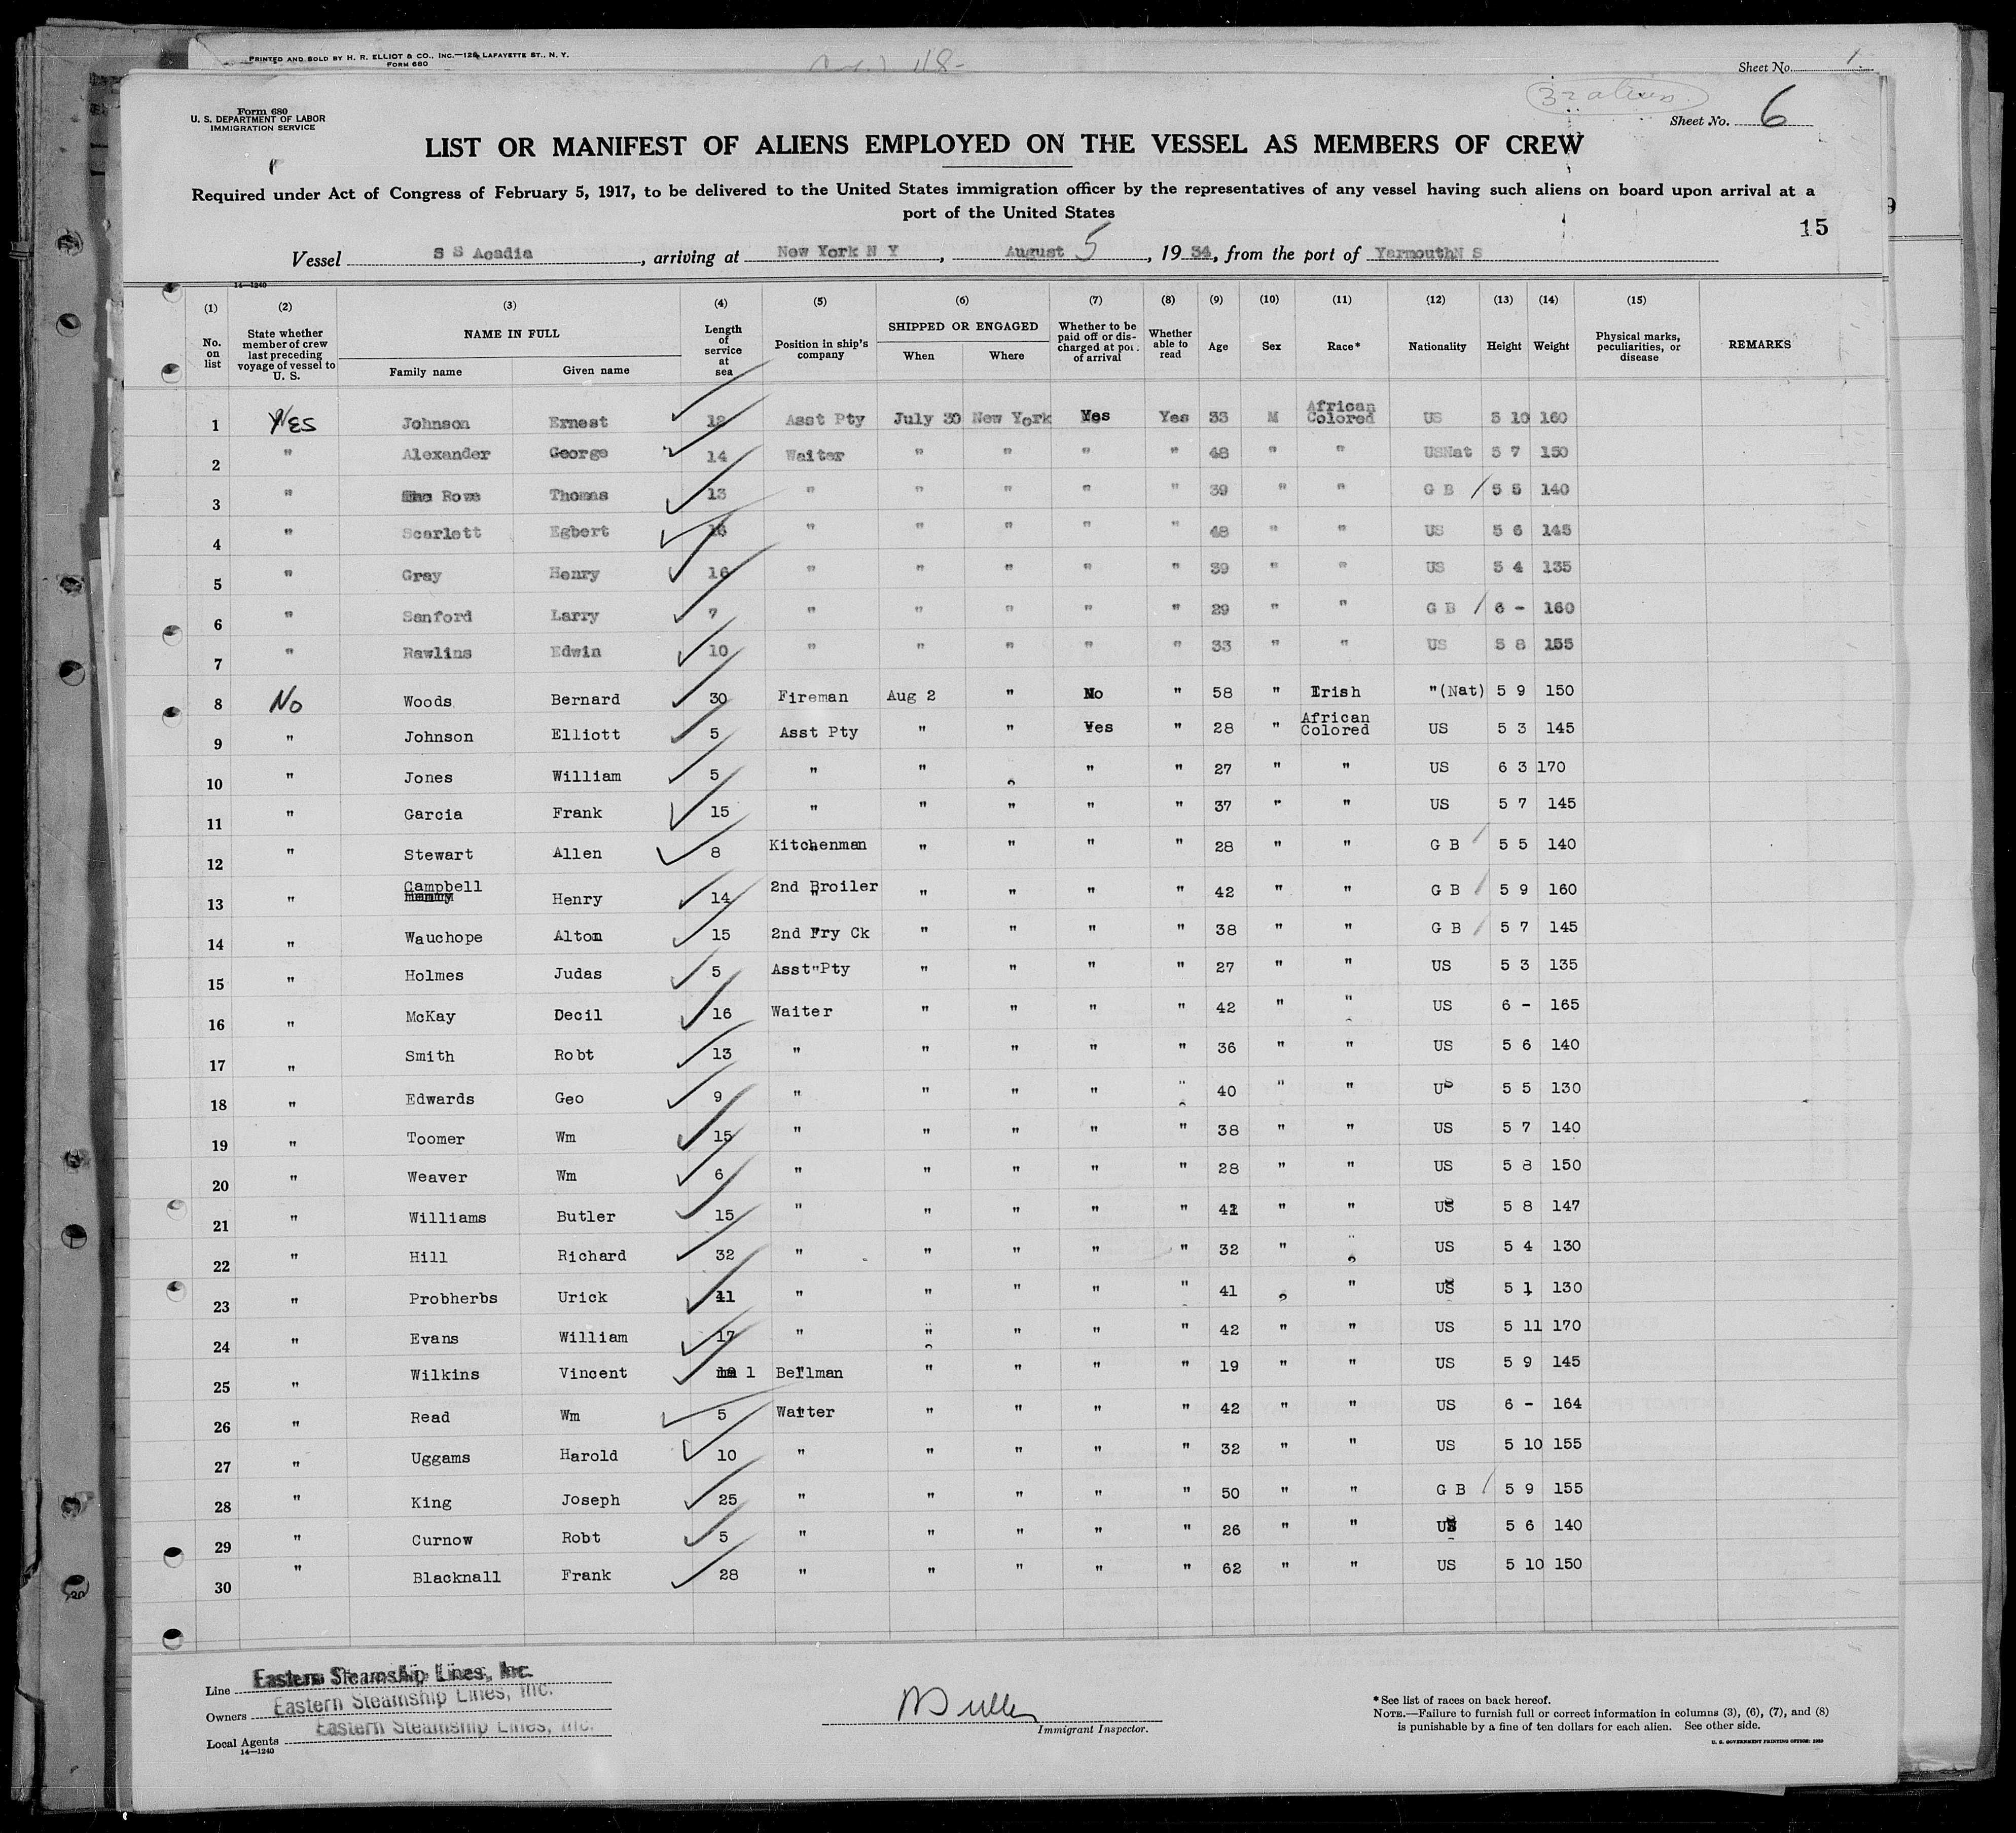 PRINTED AND SOLD BY H. R. ELLIOT & CO., INC.—126 LAFAYETTE ST., N. Y.
FORM 680
Sheet No. 1
Form 680
U. S. DEPARTMENT OF LABOR
IMMIGRATION SERVICE
Sheet No. 6
LIST OR MANIFEST OF ALIENS EMPLOYED ON THE VESSEL AS MEMBERS OF CREW
Required under Act of Congress of February 5, 1917, to be delivered to the United States immigration officer by the representatives of any vessel having such aliens on board upon arrival at a
port of the United States
15
Vessel S S Acadia, arriving at New York N Y, August 5, 1934, from the port of YarmouthN S
14—1240
(1) (2) (3) (4) (5) (6) (7) (8) (9) (10) (11) (12) (13) (14) (15)
No. on list
State whether member of crew last preceding voyage of vessel to U. S.
NAME IN FULL
Family name
Given name
Length of service at sea
Position in ship's company
SHIPPED OR ENGAGED
When
Where
Whether to be paid off or discharged at port of arrival
Whether able to read
Age
Sex
Race*
Nationality
Height
Weight
Physical marks, peculiarities, or disease
REMARKS
1 Yes Johnson Ernest 12 Asst Pty July 30 New York Yes Yes 33 M African Colored US 5 10 160
2 " Alexander George 14 Waiter " " " " 48 " " USNat 5 7 150
3 " Rowe Thomas 13 " " " " " 39 " " G B 5 5 140
4 " Scarlett Egbert 16 " " " " " 48 " " US 5 6 145
5 " Gray Henry 16 " " " " " 39 " " US 5 4 135
6 " Sanford Larry 7 " " " " " 29 " " G B 6 - 160
7 " Rawlins Edwin 10 " " " " " 33 " " US 5 8 155
8 No Woods Bernard 30 Fireman Aug 2 " No " 58 " Irish "(Nat) 5 9 150
9 " Johnson Elliott 5 Asst Pty " " Yes " 28 " African Colored US 5 3 145
10 " Jones William 5 " " " " " 27 " " US 6 3 170
11 " Garcia Frank 15 " " " " " 37 " " US 5 7 145
12 " Stewart Allen 8 Kitchenman " " " " 28 " " G B 5 5 140
13 " Campbell Henry 14 2nd Broiler " " " " 42 " " G B 5 9 160
14 " Wauchope Alton 15 2nd Fry Ck " " " " 38 " " G B 5 7 145
15 " Holmes Judas 5 Asst"Pty " " " " 27 " " US 5 3 135
16 " McKay Decil 16 Waiter " " " " 42 " " US 6 - 165
17 " Smith Robt 13 " " " " " 36 " " US 5 6 140
18 " Edwards Geo 9 " " " " " 40 " " US 5 5 130
19 " Toomer Wm 15 " " " " " 38 " " US 5 7 140
20 " Weaver Wm 6 " " " " " 28 " " US 5 8 150
21 " Williams Butler 15 " " " " " 42 " " US 5 8 147
22 " Hill Richard 32 " " " " " 32 " " US 5 4 130
23 " Probherbs Urick 11 " " " " " 41 " " US 5 1 130
24 " Evans William 17 " " " " " 42 " " US 5 11 170
25 " Wilkins Vincent 1 Bellman " " " " 19 " " US 5 9 145
26 " Read Wm 5 Waiter " " " " 42 " " US 6 - 164
27 " Uggams Harold 10 " " " " " 32 " " US 5 10 155
28 " King Joseph 25 " " " " " 50 " " G B 5 9 155
29 " Curnow Robt 5 " " " " " 26 " " US 5 6 140
30 " Blacknall Frank 28 " " " " " 62 " " US 5 10 150
Line Eastern Steamship Lines, Inc.
Owners Eastern Steamship Lines, Inc.
Local Agents Eastern Steamship Lines, Inc.
14—1240
Immigrant Inspector.
*See list of races on back hereof.
NOTE.—Failure to furnish full or correct information in columns (3), (6), (7), and (8)
is punishable by a fine of ten dollars for each alien. See other side.
U. S. GOVERNMENT PRINTING OFFICE: 1929